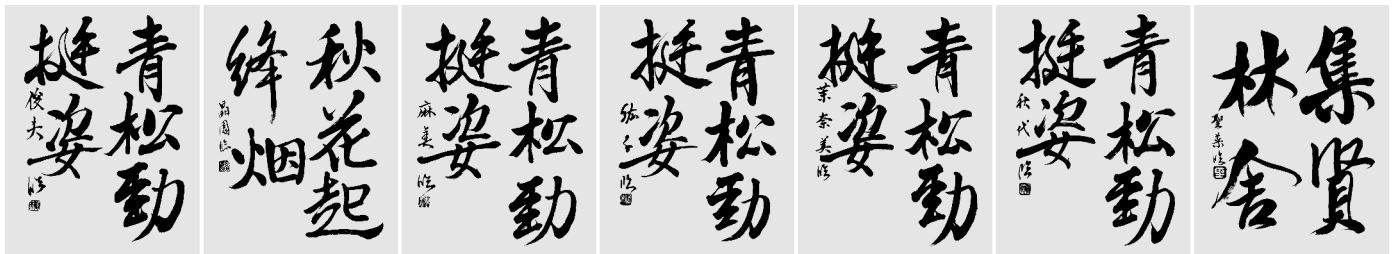 青松勁
挺姿
俊夫
臨
秋花起
絳烟
晶園臨
青松勁
挺姿
麻美
臨
青松勁
挺姿
臨
青松勁
挺姿
茉奈美臨
青松勁
挺姿
秋代
臨
集贤
林舍
聖葉臨